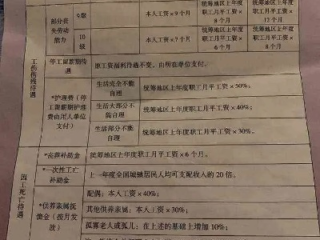 部分丧失劳动能力
9级
本人工资×9个月
统筹地区上年度职工月平工资×8个月
10级
本人工资×7个月
统筹地区上年度职工月平工资×4个月
停工留薪期待遇
原工资福利待遇不变，由所在单位支付。
*护理费（停工留薪期护理费由用人单位支付）
生活完全不能自理
统筹地区上年度职工月平工资×50%；
生活大部分不能自理
统筹地区上年度职工月平工资×40%；
生活部分不能自理
统筹地区上年度职工月平工资×30%；
因工死亡待遇
*丧葬补助金
统筹地区上年度职工月平工资×6个月。
*一次性工亡补助金
上一年度全国城镇居民人均可支配收入的20倍。
*供养亲属抚恤金（按月发放）
配偶：本人工资×40%；
其他供养亲属：本人工资×30%；
孤寡老人或孤儿：在上述的基础上增加10%